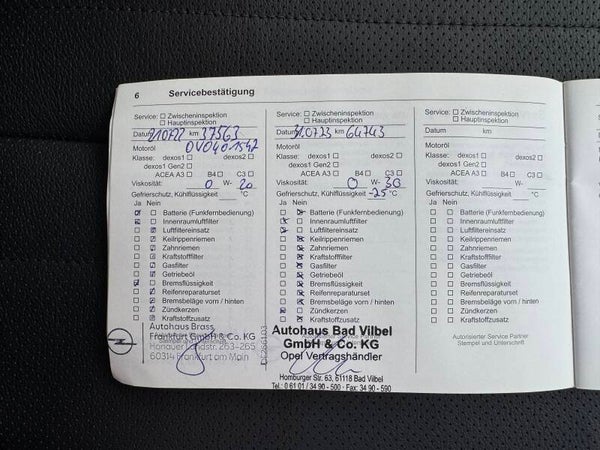 6 Servicebestätigung
Service: Zwischeninspektion
Hauptinspektion
Datum 210722 km 37563
Motoröl OV0401547
Klasse: dexos1 dexos2
dexos1 Gen2
ACEA A3 B4 C3
Viskosität: 0 W- 20
Gefrierschutz, Kühlflüssigkeit °C
Ja Nein
Batterie (Funkfernbedienung)
Innenraumluftfilter
Luftfiltereinsatz
Keilrippenriemen
Zahnriemen
Kraftstofffilter
Gasfilter
Getriebeöl
Bremsflüssigkeit
Reifenreparaturset
Bremsbeläge vorn / hinten
Zündkerzen
Kraftstoffzusatz
Autohaus Brass
Frankfurt GmbH & Co. KG
Hanauer Landstr. 263-265
60314 Frankfurt am Main
Service: Zwischeninspektion
Hauptinspektion
Datum 310723 km 64743
Motoröl
Klasse: dexos1 dexos2
dexos1 Gen2
ACEA A3 B4 C3
Viskosität: 0 W- 30
Gefrierschutz, Kühlflüssigkeit -25 °C
Ja Nein
Batterie (Funkfernbedienung)
Innenraumluftfilter
Luftfiltereinsatz
Keilrippenriemen
Zahnriemen
Kraftstofffilter
Gasfilter
Getriebeöl
Bremsflüssigkeit
Reifenreparaturset
Bremsbeläge vorn / hinten
Zündkerzen
Kraftstoffzusatz
Autohaus Bad Vilbel
GmbH & Co. KG
Opel Vertragshändler
Homburger Str. 63, 61118 Bad Vilbel
Tel.: 0 61 01 / 34 90 - 500 · Fax: 34 90 - 590
Service: Zwischeninspektion
Hauptinspektion
Datum km
Motoröl
Klasse: dexos1 dexos2
dexos1 Gen2
ACEA A3 B4 C3
Viskosität: W-
Gefrierschutz, Kühlflüssigkeit °C
Ja Nein
Batterie (Funkfernbedienung)
Innenraumluftfilter
Luftfiltereinsatz
Keilrippenriemen
Zahnriemen
Kraftstofffilter
Gasfilter
Getriebeöl
Bremsflüssigkeit
Reifenreparaturset
Bremsbeläge vorn / hinten
Zündkerzen
Kraftstoffzusatz
Autorisierter Service Partner
Stempel und Unterschrift